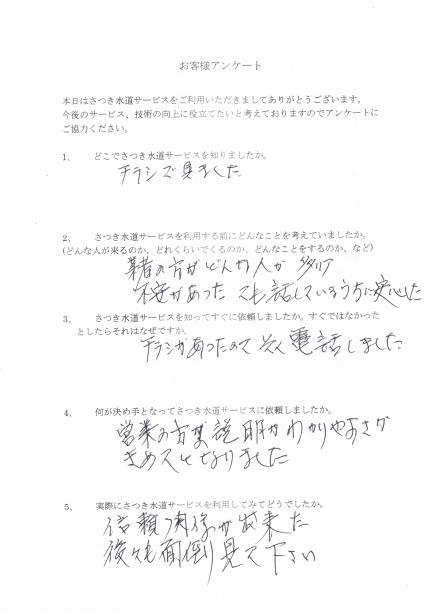 お客様アンケート
本日はさつき水道サービスをご利用いただきましてありがとうございます。
今後のサービス、技術の向上に役立てたいと考えておりますのでアンケートに
ご協力ください。
1、 どこでさつき水道サービスを知りましたか。
チラシで見ました
2、 さつき水道サービスを利用する前にどんなことを考えていましたか。
(どんな人が来るのか、どれくらいでくるのか、どんなことをするのか、など)
業者の方がどんな人か
不安があった でも話しているうちに安心した
3、 さつき水道サービスを知ってすぐに依頼しましたか。すぐではなかった
としたらそれはなぜですか。
チラシがあったので 電話しました
4、 何が決め手となってさつき水道サービスに依頼しましたか。
営業の方の説明がわかりやすさが
きめてとなりました
5、 実際にさつき水道サービスを利用してみてどうでしたか。
信頼関係が出来た
後々も面倒見て下さい